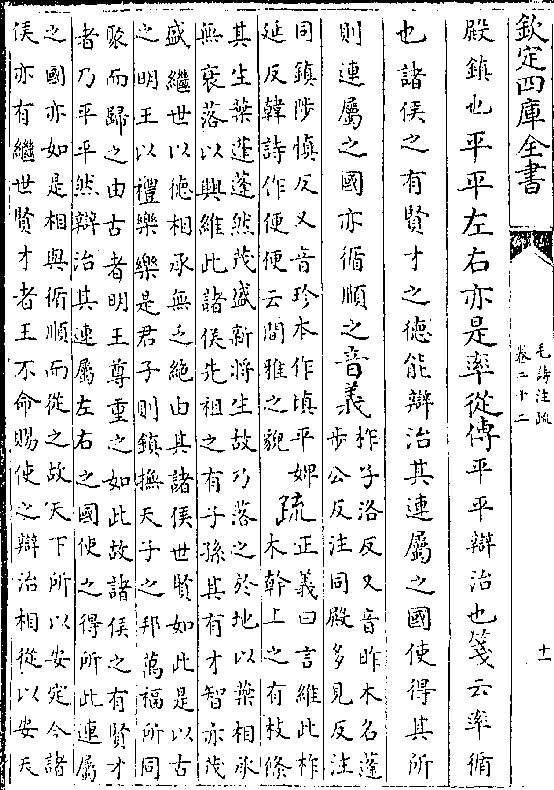 欽定四庫全書
毛詩注疏
卷二十二
十一
殿鎮也平平左右亦是率從傳平平辯治也箋云率循
也諸侯之有賢才之德能辯治其連屬之國使得其所
則連屬之國亦循順之音義
柞子洛反又音昨木名蓬
步公反注同殿多見反注
同鎮陟慎反又音珍本作填平婢
延反韓詩作便便云閒雅之貌
疏
正義曰言維此柞
木幹上之有枝條
其生葉蓬蓬然茂盛新將生故乃落之於地以葉相承
無衰落以興維此諸侯先祖之有子孫其有才智亦茂
盛繼世以德相承無乏絶由其諸侯世賢如此是以古
之明王以禮樂樂是君子則鎮撫天子之邦萬福所同
聚而歸之由古者明王尊重之如此故諸侯之有賢才
者乃平平然辯治其連屬左右之國使之得所此連屬
之國亦如是相與循順而從之故天下所以安定今諸
侯亦有繼世賢才者王不命賜使之辯治相從以安天